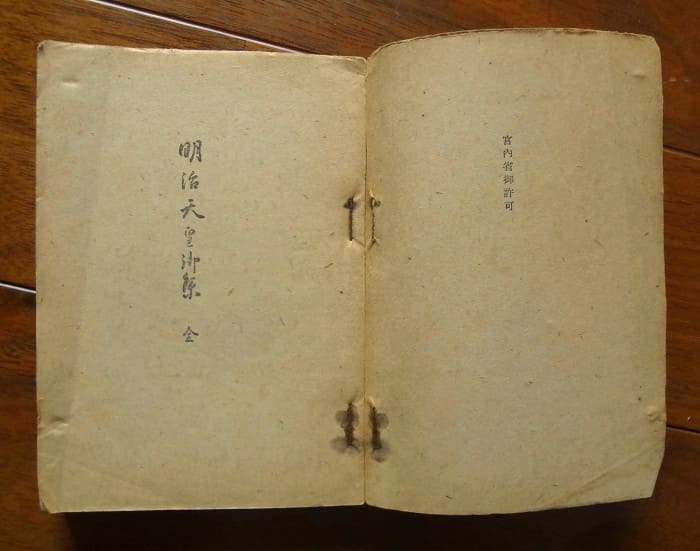 宮内省御許可
明治天皇御集 全